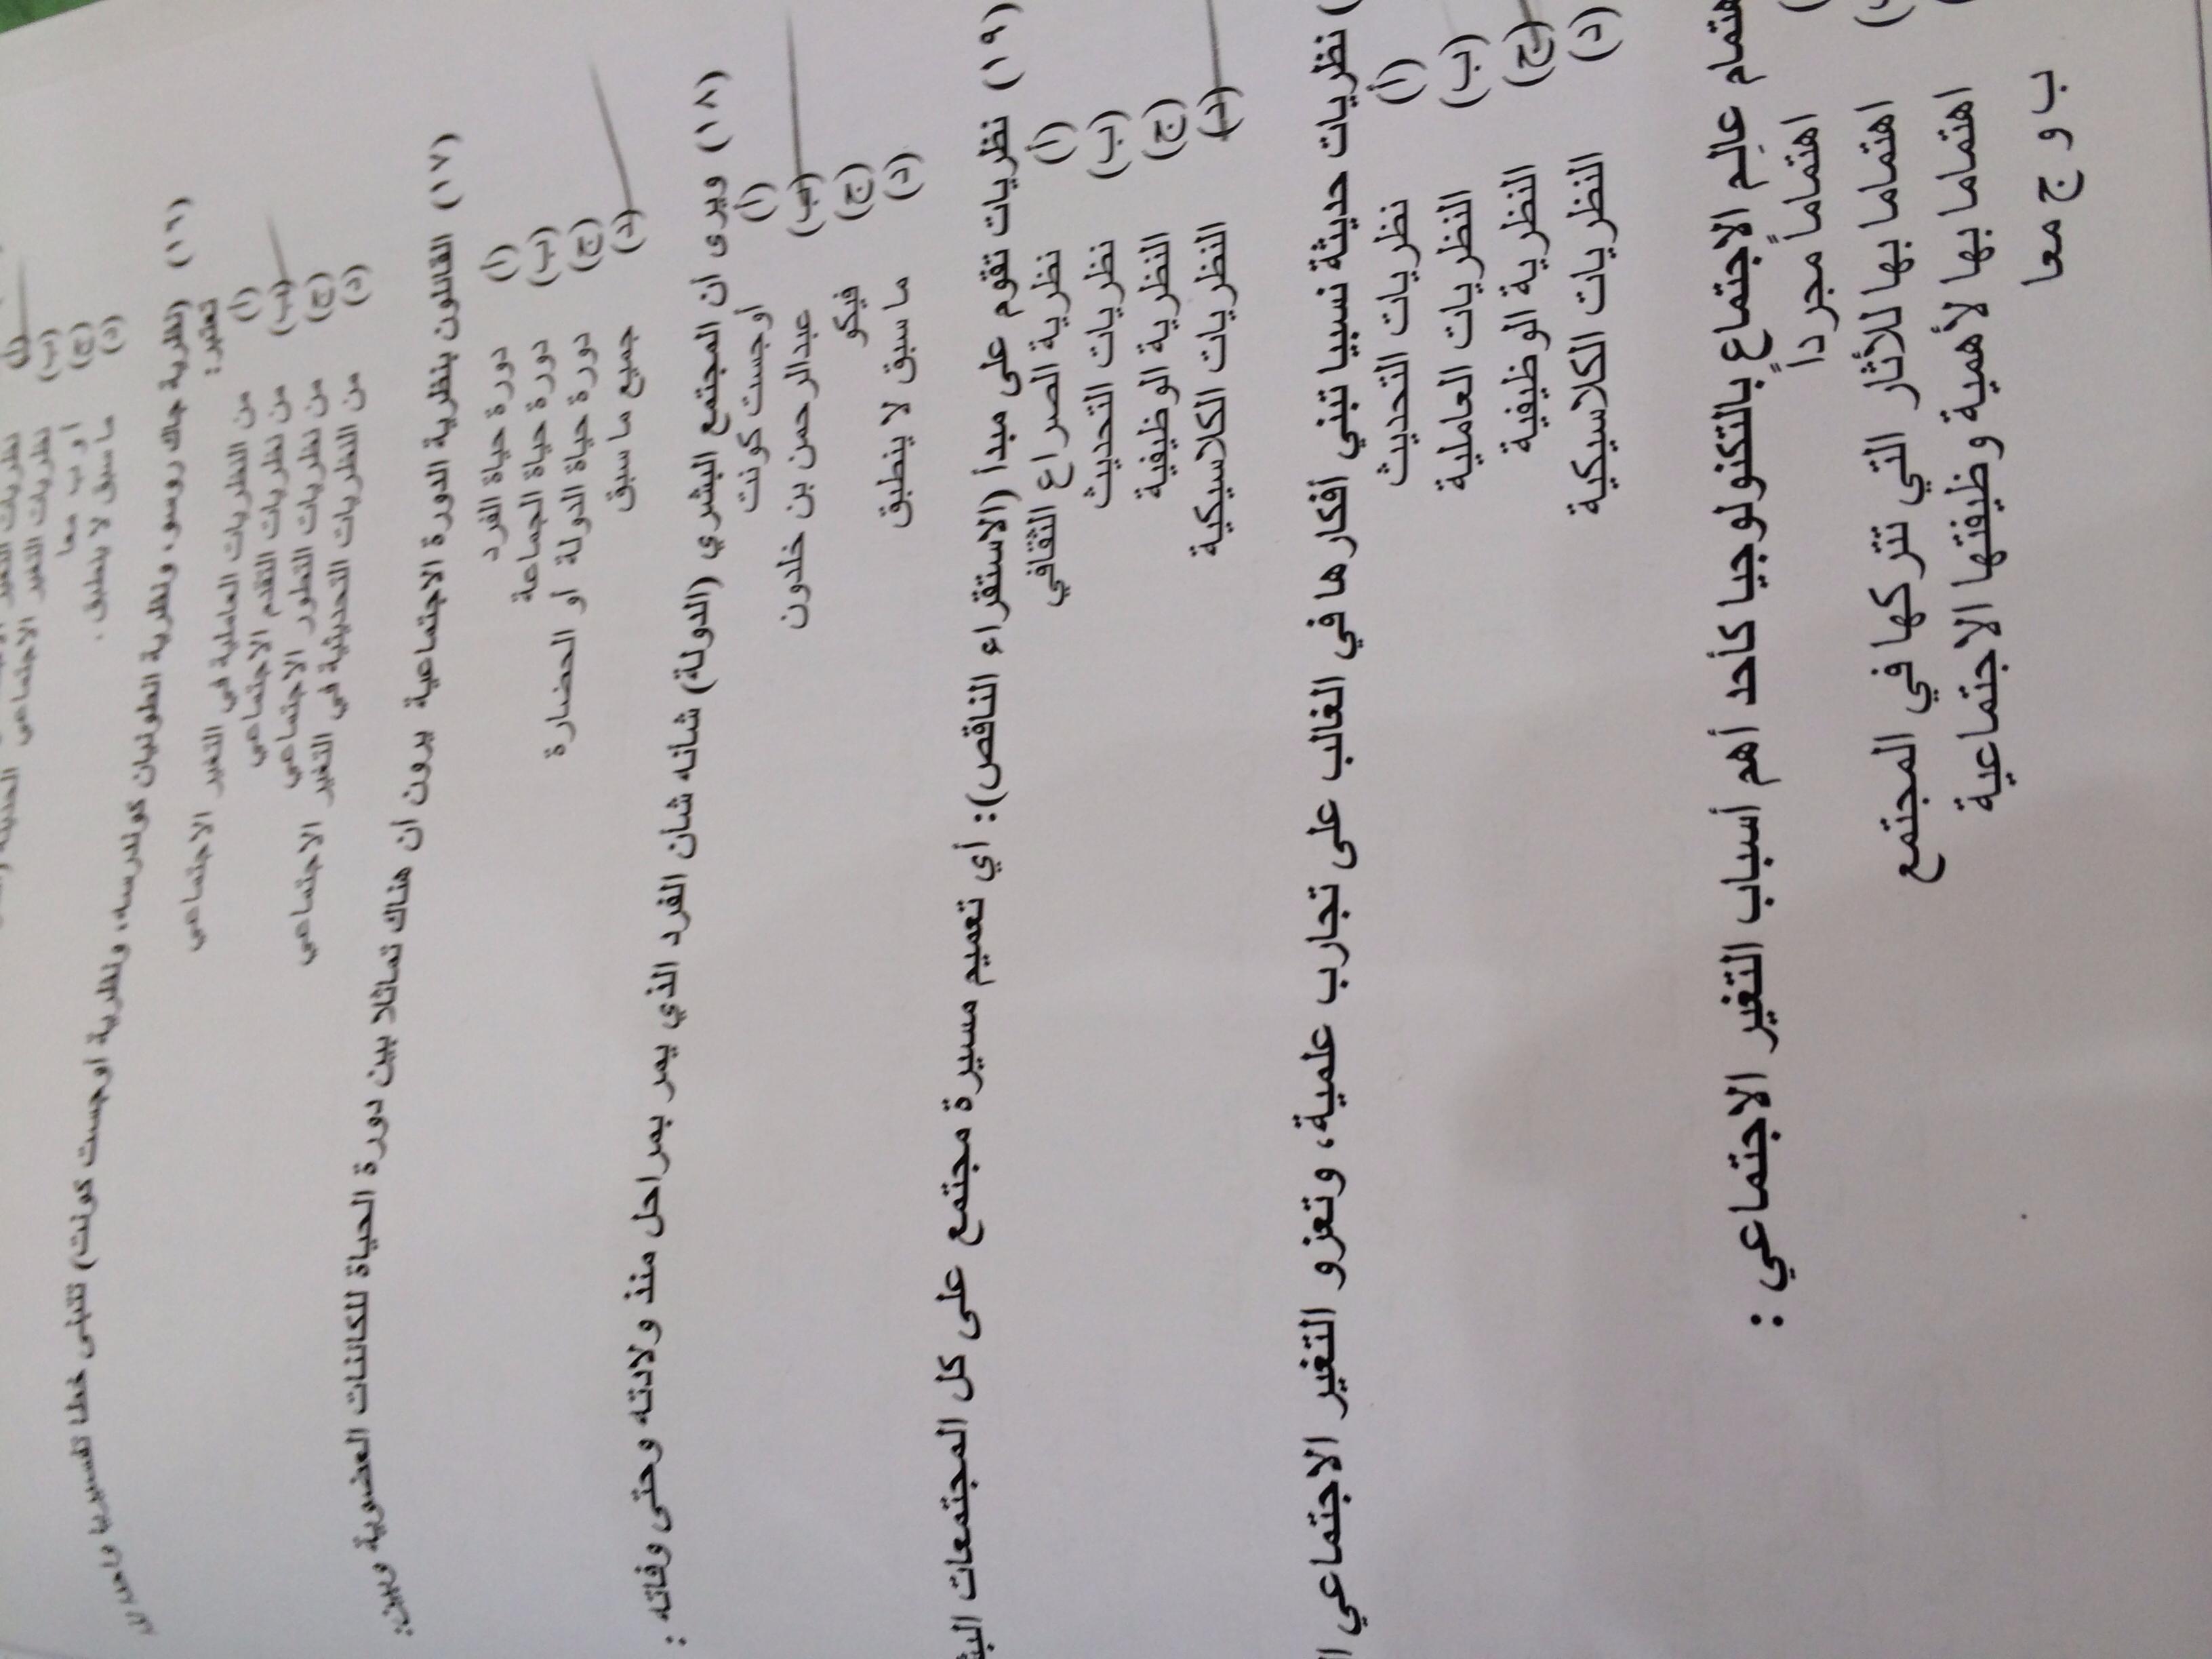 نظريات التغير
نظريات التغير الاجتماعي
(أ)
(ب)
(ج) أ و ب معا
(د) ما سبق لا ينطبق .
(١٦) (نظرية جاك روسو، ونظرية الطونيان كوندرسيه، ونظرية أوجست كونت) تتبنى خطا تفسيريا واحدا
تعتبر:
(أ) من النظريات العاملية في التغير الاجتماعي
(ب) من نظريات التقدم الاجتماعي
(ج) من نظريات التطور الاجتماعي
(د) من النظريات التحديثية في التغير الاجتماعي
(١٧) القائلون بنظرية الدورة الاجتماعية يرون أن هناك تماثلا بين دورة الحياة للكائنات العضوية وبين:
(أ) دورة حياة الفرد
(ب) دورة حياة الجماعة
(ج) دورة حياة الدولة أو الحضارة
(د) جميع ما سبق
(١٨) ويرى أن المجتمع البشري (الدولة) شانه شان الفرد الذي يمر بمراحل منذ ولادته وحتى وفاته :
(أ) أوجست كونت
(ب) عبدالرحمن بن خلدون
(ج) فيكو
(د) ما سبق لا ينطبق
(١٩) نظريات تقوم على مبدأ (الاستقراء الناقص): أي تعميم مسيرة مجتمع على كل المجتمعات
(أ) نظرية الصراع الثقافي
(ب) نظريات التحديث
(ج) النظرية الوظيفية
(د) النظريات الكلاسيكية
) نظريات حديثة نسبيا تبني أفكارها في الغالب على تجارب علمية، وتعزو التغير الاجتماعي
(أ) نظريات التحديث
(ب) النظريات العاملية
(ج) النظرية الوظيفية
(د) النظريات الكلاسيكية
عالِم الاجتماع بالتكنولوجيا كأحد أهم أسباب التغير الاجتماعي :
اهتماماً مجرداً
اهتماما بها للأثار التي تتركها في المجتمع
اهتماما بها لأهمية وظيفتها الاجتماعية
ب و ج معا